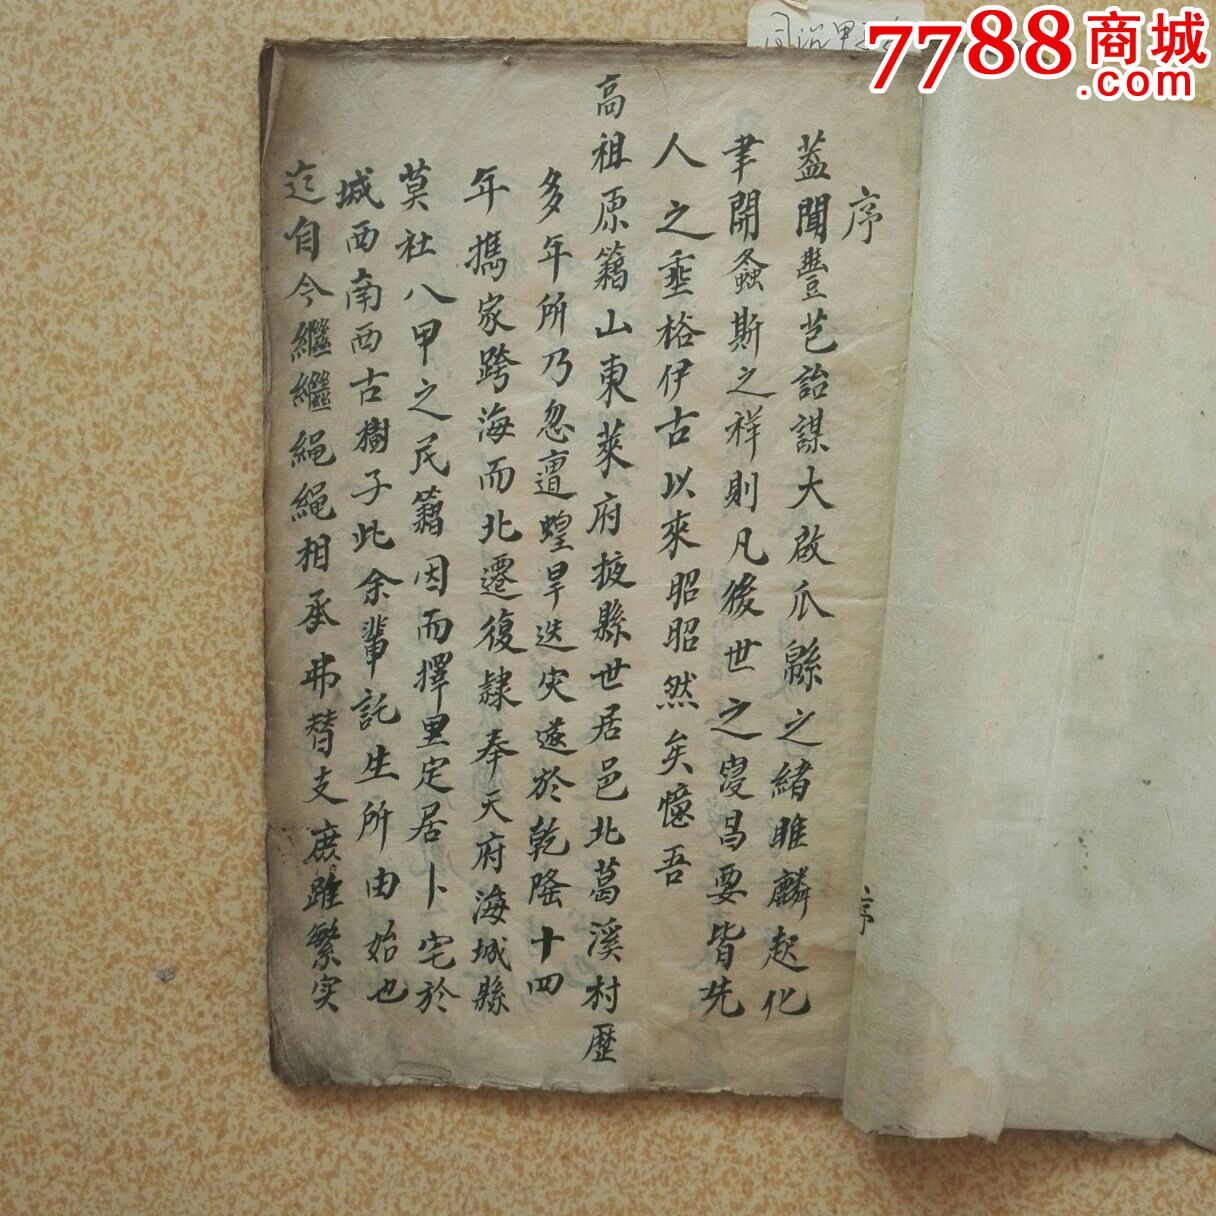 同治甲
7788商城
.com
序
蓋聞豐芑詒謀大啟瓜緜之緒睢麟起化
肇開螽斯之祥則凡後世之寖昌要皆先
人之垂裕伊古以來昭昭然矣憶吾
高祖原籍山東萊府掖縣世居邑北葛溪村歷
多年所乃忽遭蝗旱迭灾遂於乾隆十四
年携家跨海而北遷復隸奉天府海城縣
莫社八甲之民籍因而擇里定居卜宅於
城西南西古樹子此余輩託生所由始也
迄自今繼繼繩繩相承弗替支庶雖繁实
序